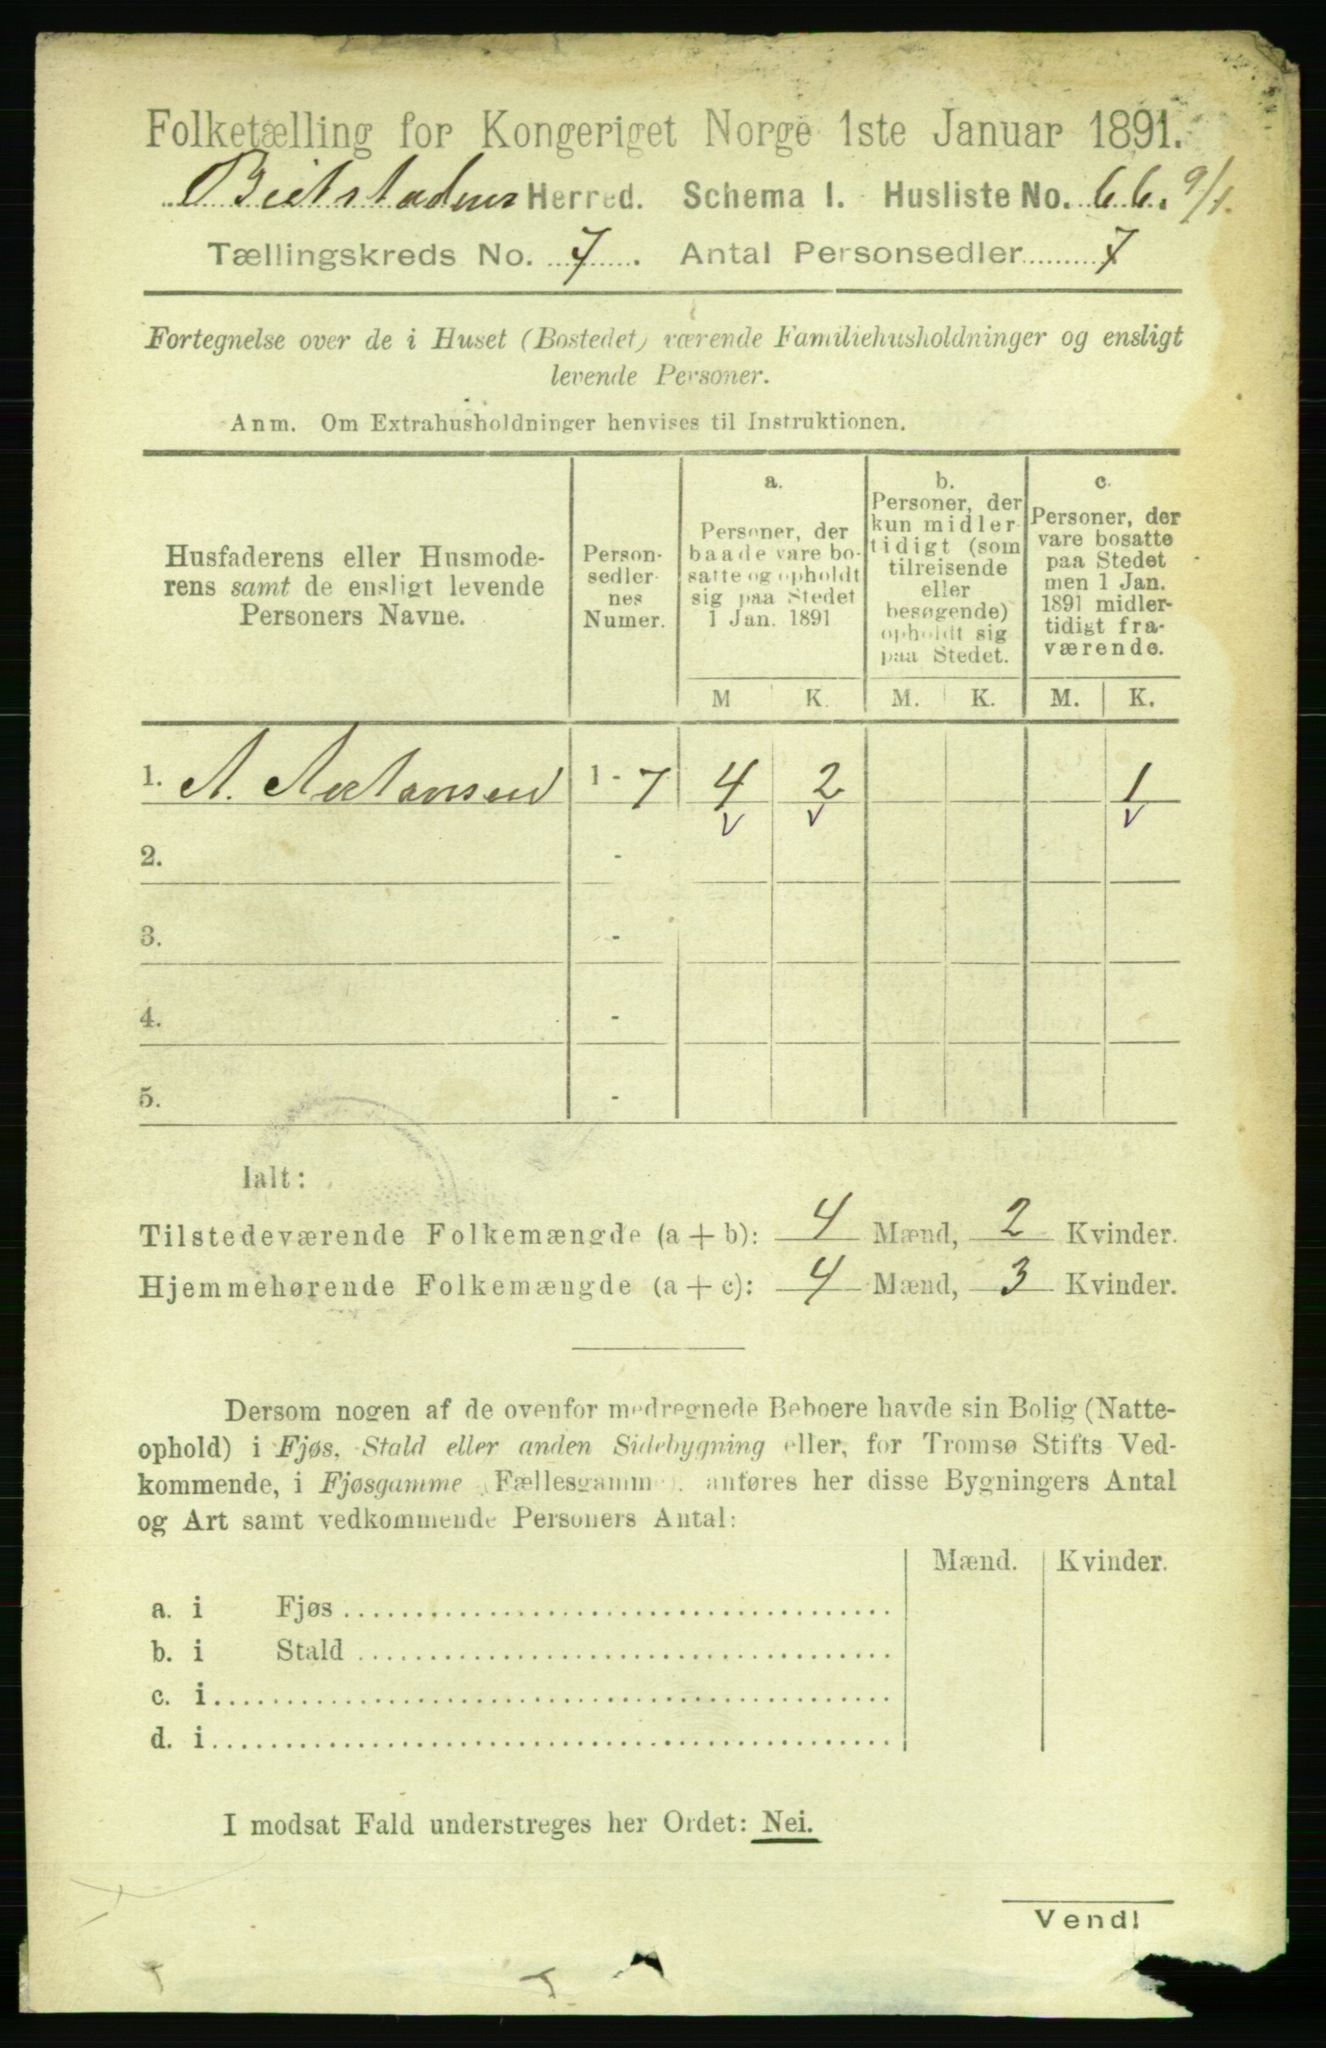 Folketælling for Kongeriget Norge 1ste Januar 1891.
Beitstadens Herred. Schema 1. Husliste No. 66. 9/1.
Tællingskreds No. 7. Antal Personsedler 7
Fortegnelse over de i Huset (Bostedet) værende Familiehusholdninger og ensligt
levende Personer.
Anm. Om Extrahusholdninger henvises til Instruktionen.
Husfaderens eller Husmode-
rens samt de ensligt levende
Personers Navne.
Person-
sedler-
nes
Numer.
a.
Personer, der
baade vare bo-
satte og opholdt
sig paa Stedet
1 Jan. 1891
b.
Personer, der
kun midler-
tidigt (som
tilreisende
eller
besøgende)
opholdt sig
paa Stedet.
c.
Personer, der
vare bosatte
paa Stedet
men 1 Jan.
1891 midler-
tidigt fra-
værende.
M K. M. K. M. K.
1. A. 1 - 7 4 2 1
2. -
3. -
4. -
5. -
Ialt:
Tilstedeværende Folkemængde (a + b): 4 Mænd, 2 Kvinder.
Hjemmehørende Folkemængde (a + c): 4 Mænd, 3 Kvinder.
Dersom nogen af de ovenfor medregnede Beboere havde sin Bolig (Natte-
ophold) i Fjøs, Stald eller anden Sidebygning eller, for Tromsø Stifts Ved-
kommende, i Fjøsgamme (Fællesgamme), anføres her disse Bygningers Antal
og Art samt vedkommende Personers Antal:
Mænd. Kvinder.
a. i Fjøs
b. i Stald
c. i
d. i
I modsat Fald understreges her Ordet: Nei.
Vend!